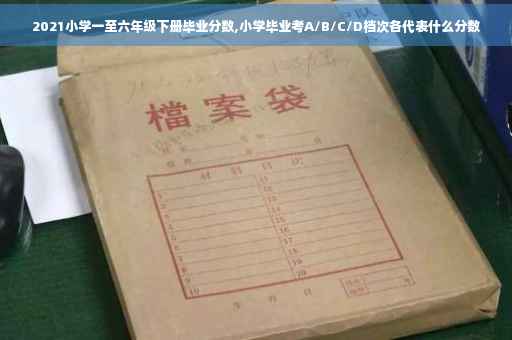 2021小学一至六年级下册毕业分数,小学毕业考A/B/C/D档次各代表什么分数
檔案袋
材料目次
1 11
2 12
3 13
4 14
5 15
6 16
7 17
8 18
9 19
10 20
年 月 日